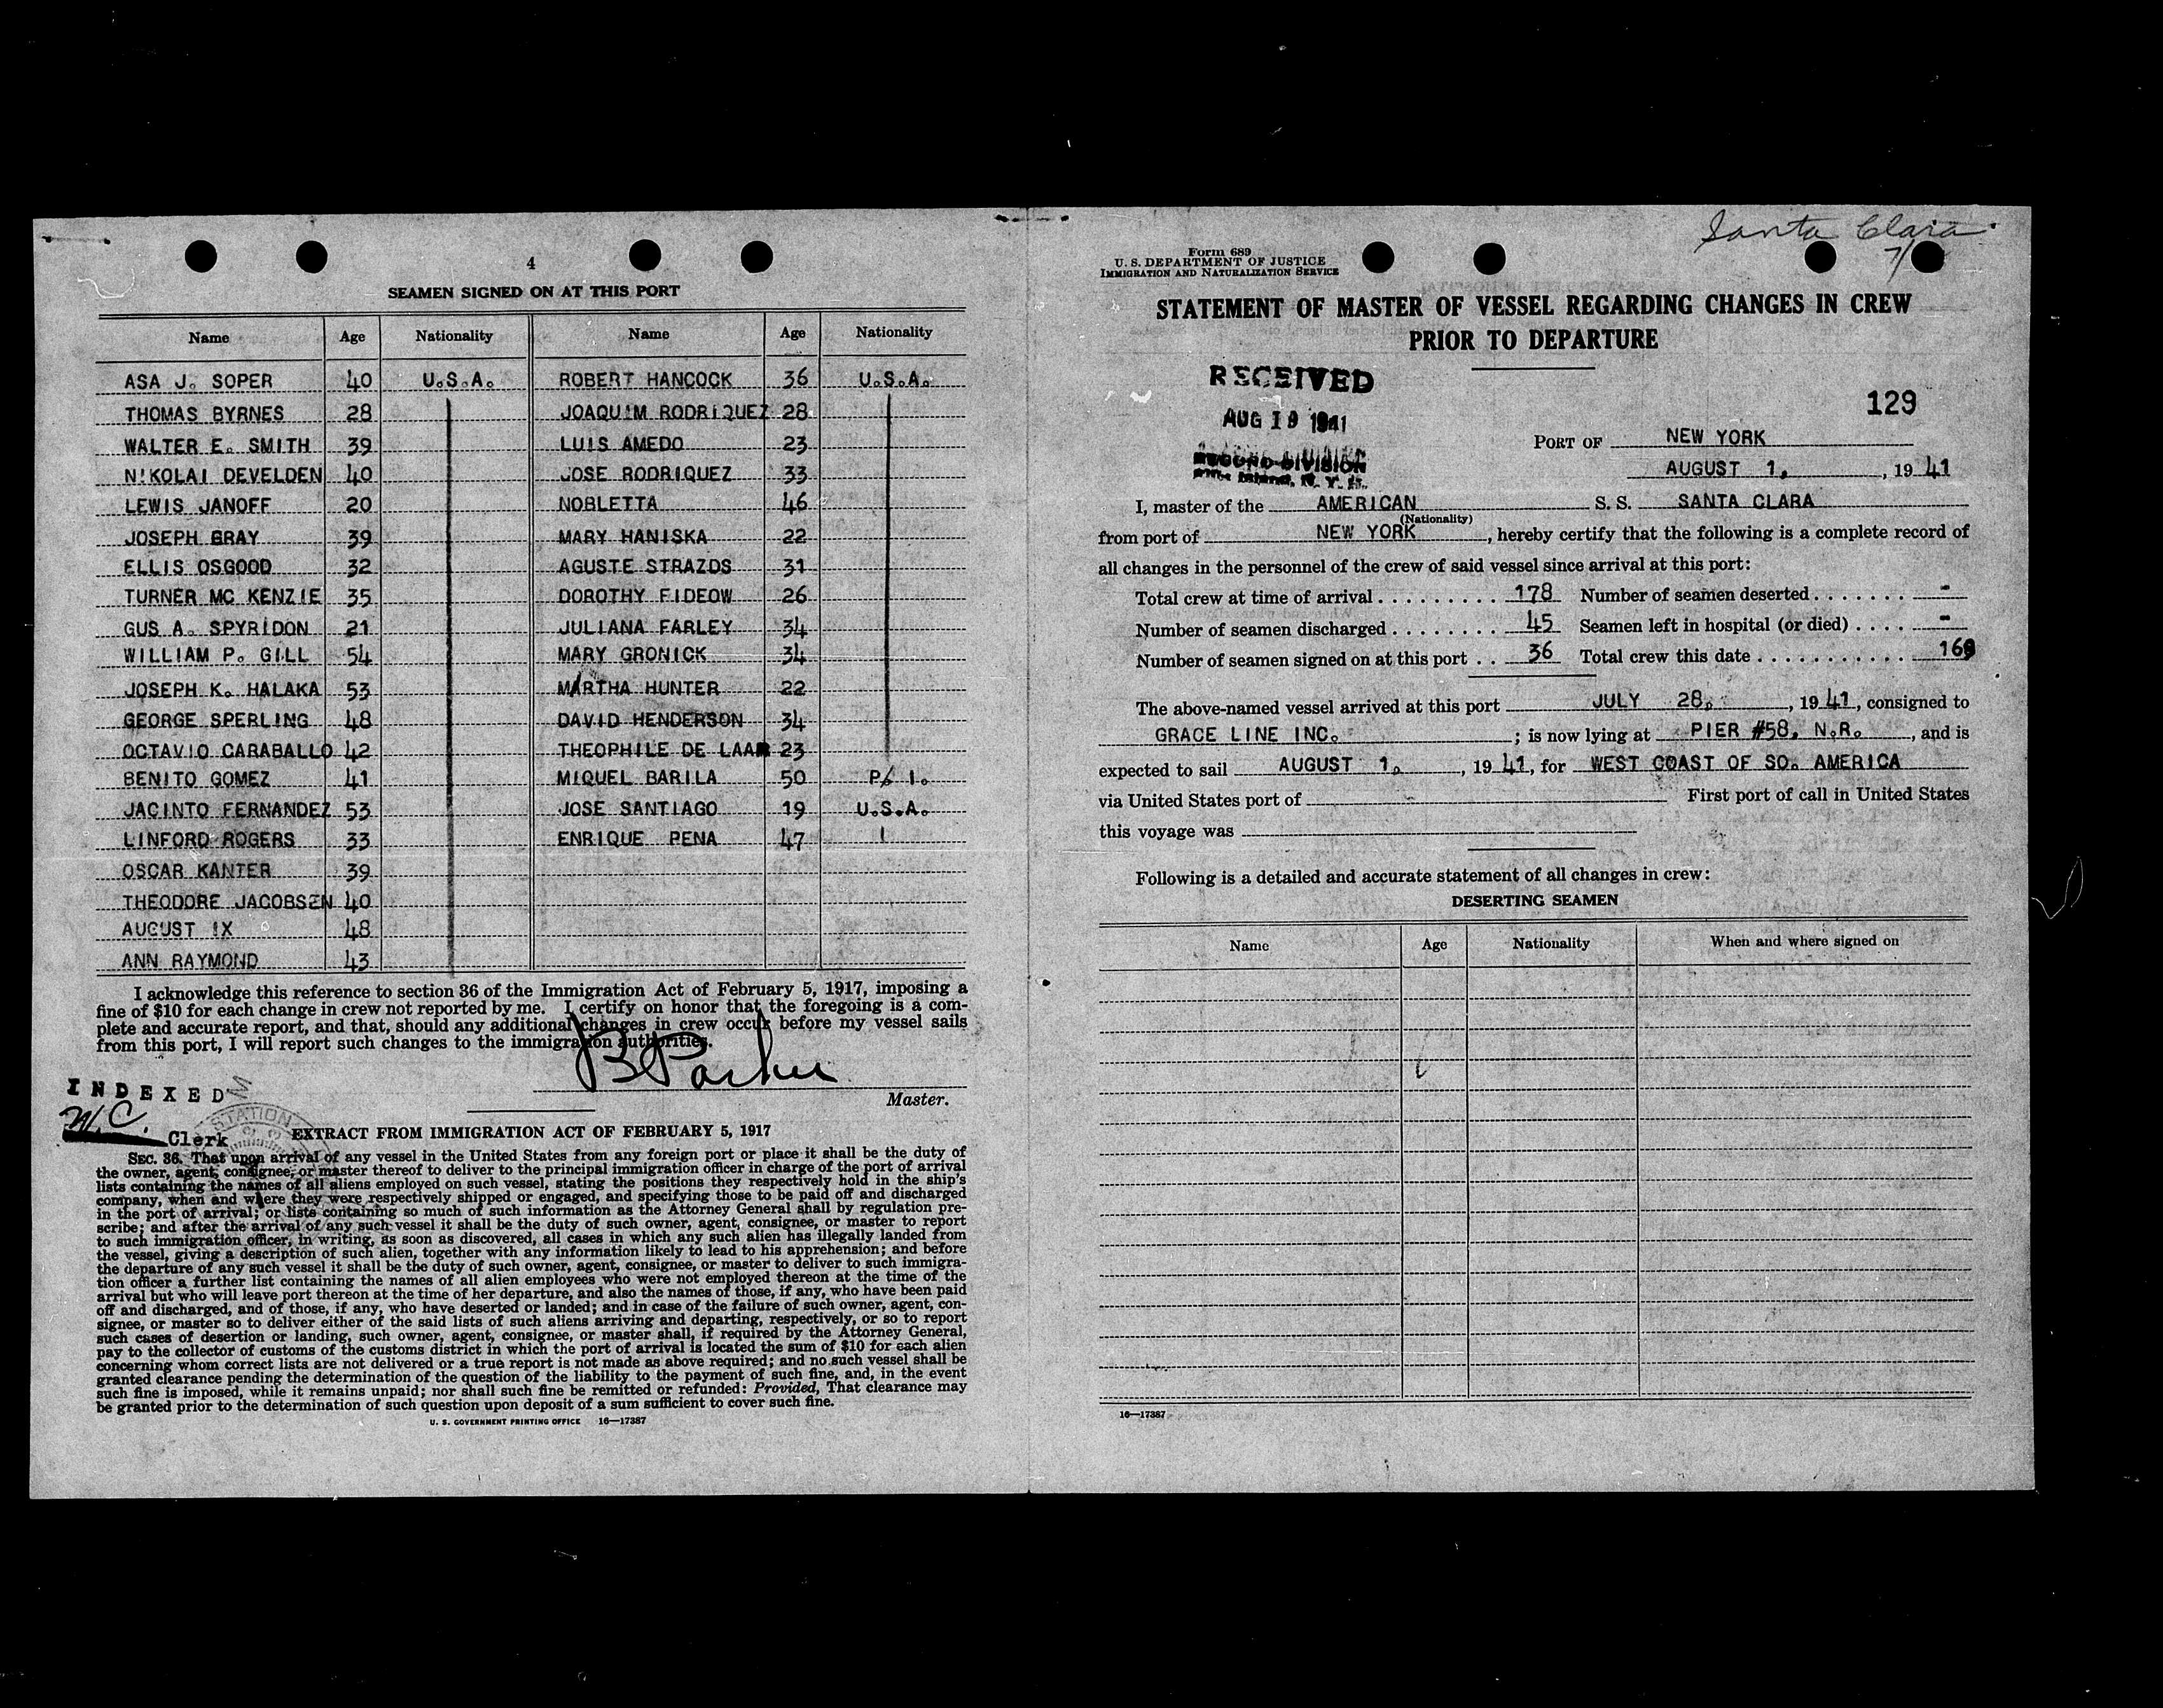 4
SEAMEN SIGNED ON AT THIS PORT
Name Age Nationality Name Age Nationality
ASA J. SOPER 40 U.S.A. ROBERT HANCOCK 36 U.S.A.
THOMAS BYRNES 28 JOAQUIM RODRIQUEZ 28
WALTER E. SMITH 39 LUIS AMEDO 23
NIKOLAI DEVELDEN 40 JOSE RODRIQUEZ 33
LEWIS JANOFF 20 NOBLETTA 46
JOSEPH GRAY 39 MARY HANISKA 22
ELLIS OSGOOD 32 AGUSTE STRAZDS 31
TURNER MC KENZIE 35 DOROTHY FIDEOW 26
GUS A. SPYRIDON 21 JULIANA FARLEY 34
WILLIAM P. GILL 54 MARY GRONICK 34
JOSEPH K. HALAKA 53 MARTHA HUNTER 22
GEORGE SPERLING 48 DAVID HENDERSON 34
OCTAVIO CARABALLO 42 THEOPHILE DE LAAR 23
BENITO GOMEZ 41 MIQUEL BARILA 50 P. I.
JACINTO FERNANDEZ 53 JOSE SANTIAGO 19 U.S.A.
LINFORD ROGERS 33 ENRIQUE PENA 47
OSCAR KANTER 39
THEODORE JACOBSEN 40
AUGUST IX 48
ANN RAYMOND 43
I acknowledge this reference to section 36 of the Immigration Act of February 5, 1917, imposing a
fine of $10 for each change in crew not reported by me. I certify on honor that the foregoing is a com-
plete and accurate report, and that, should any additional changes in crew occur before my vessel sails
from this port, I will report such changes to the immigration authorities.
B Parker
Master.
INDEXED
W.C.
Clerk
STATION
EXTRACT FROM IMMIGRATION ACT OF FEBRUARY 5, 1917
SEC. 36. That upon arrival of any vessel in the United States from any foreign port or place it shall be the duty of
the owner, agent, consignee, or master thereof to deliver to the principal immigration officer in charge of the port of arrival
lists containing the names of all aliens employed on such vessel, stating the positions they respectively hold in the ship's
company, when and where they were respectively shipped or engaged, and specifying those to be paid off and discharged
in the port of arrival; or lists containing so much of such information as the Attorney General shall by regulation pre-
scribe; and after the arrival of any such vessel it shall be the duty of such owner, agent, consignee, or master to report
to such immigration officer, in writing, as soon as discovered, all cases in which any such alien has illegally landed from
the vessel, giving a description of such alien, together with any information likely to lead to his apprehension; and before
the departure of any such vessel it shall be the duty of such owner, agent, consignee, or master to deliver to such immigra-
tion officer a further list containing the names of all alien employees who were not employed thereon at the time of the
arrival but who will leave port thereon at the time of her departure, and also the names of those, if any, who have been paid
off and discharged, and of those, if any, who have deserted or landed; and in case of the failure of such owner, agent, con-
signee, or master so to deliver either of the said lists of such aliens arriving and departing, respectively, or so to report
such cases of desertion or landing, such owner, agent, consignee, or master shall, if required by the Attorney General,
pay to the collector of customs of the customs district in which the port of arrival is located the sum of $10 for each alien
concerning whom correct lists are not delivered or a true report is not made as above required; and no such vessel shall be
granted clearance pending the determination of the question of the liability to the payment of such fine, and, in the event
such fine is imposed, while it remains unpaid; nor shall such fine be remitted or refunded: Provided, That clearance may
be granted prior to the determination of such question upon deposit of a sum sufficient to cover such fine.
U. S. GOVERNMENT PRINTING OFFICE 16—17387
Santa Clara
7/
Form 689
U. S. DEPARTMENT OF JUSTICE
IMMIGRATION AND NATURALIZATION SERVICE
STATEMENT OF MASTER OF VESSEL REGARDING CHANGES IN CREW
PRIOR TO DEPARTURE
RECEIVED
AUG 19 1941
RECORD DIVISION
Ellis Island, N. Y. H.
129
PORT OF NEW YORK
AUGUST 1, , 19 41
I, master of the AMERICAN S. S. SANTA CLARA
(Nationality)
from port of NEW YORK , hereby certify that the following is a complete record of
all changes in the personnel of the crew of said vessel since arrival at this port:
Total crew at time of arrival . . . . . . . . . . 178 Number of seamen deserted . . . . . . . -
Number of seamen discharged . . . . . . . . 45 Seamen left in hospital (or died) . . . . -
Number of seamen signed on at this port . . 36 Total crew this date . . . . . . . . . . . . 169
The above-named vessel arrived at this port JULY 28, , 19 41, consigned to
GRACE LINE INC. ; is now lying at PIER #58, N.R. , and is
expected to sail AUGUST 1, , 19 41, for WEST COAST OF SO. AMERICA
via United States port of First port of call in United States
this voyage was
Following is a detailed and accurate statement of all changes in crew:
DESERTING SEAMEN
Name Age Nationality When and where signed on
16—17387